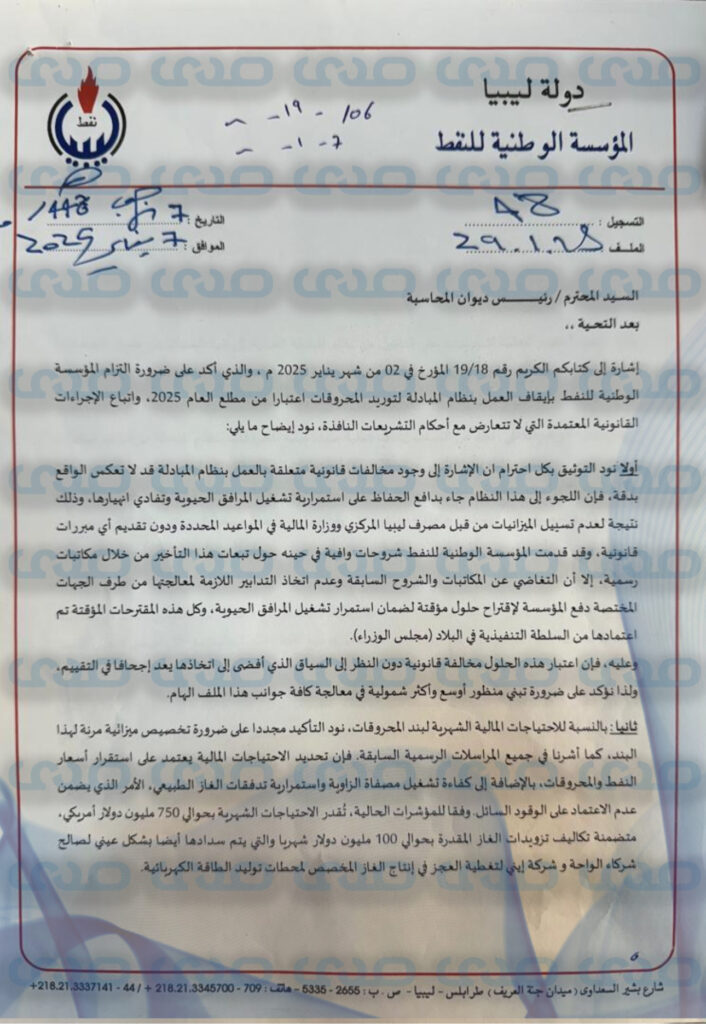 دولة ليبيا
المؤسسة الوطنية للنفط
نفط
106/ - 19 -
7 - 1 -
التسجيل :
الملف 29.1.28
التاريخ : 7 رجب 1446
الموافق : 7 يناير 2025
السيد المحترم / رئيـــــس ديوان المحاسبة
بعد التحية ،،
إشارة إلى كتابكم الكريم رقم 19/18 المؤرخ في 02 من شهر يناير 2025 م ، والذي أكد على ضرورة التزام المؤسسة
الوطنية للنفط بإيقاف العمل بنظام المبادلة لتوريد المحروقات اعتبارا من مطلع العام 2025، واتباع الإجراءات
القانونية المعتمدة التي لا تتعارض مع أحكام التشريعات النافذة، نود إيضاح ما يلي:
أولا نود التوثيق بكل احترام ان الإشارة إلى وجود مخالفات قانونية متعلقة بالعمل بنظام المبادلة قد لا تعكس الواقع
بدقة، فإن اللجوء إلى هذا النظام جاء بدافع الحفاظ على استمرارية تشغيل المرافق الحيوية وتفادي انهيارها، وذلك
نتيجة لعدم تسييل الميزانيات من قبل مصرف ليبيا المركزي ووزارة المالية في المواعيد المحددة ودون تقديم أي مبررات
قانونية، وقد قدمت المؤسسة الوطنية للنفط شروحات وافية في حينه حول تبعات هذا التأخير من خلال مكاتبات
رسمية، إلا أن التغاضي عن المكاتبات والشروح السابقة وعدم اتخاذ التدابير اللازمة لمعالجتها من طرف الجهات
المختصة دفع المؤسسة لإقتراح حلول مؤقتة لضمان استمرار تشغيل المرافق الحيوية، وكل هذه المقترحات المؤقتة تم
اعتمادها من السلطة التنفيذية في البلاد (مجلس الوزراء).
وعليه، فإن اعتبار هذه الحلول مخالفة قانونية دون النظر إلى السياق الذي أفضى إلى اتخاذها يعد إجحافا في التقييم،
ولذا نؤكد على ضرورة تبني منظور أوسع وأكثر شمولية في معالجة كافة جوانب هذا الملف الهام.
ثانيا: بالنسبة للاحتياجات المالية الشهرية لبند المحروقات، نود التأكيد مجددا على ضرورة تخصيص ميزانية مرنة لهذا
البند، كما أشرنا في جميع المراسلات الرسمية السابقة. فإن تحديد الاحتياجات المالية يعتمد على استقرار أسعار
النفط والمحروقات، بالإضافة إلى كفاءة تشغيل مصفاة الزاوية واستمرارية تدفقات الغاز الطبيعي، الأمر الذي يضمن
عدم الاعتماد على الوقود السائل. وفقا للمؤشرات الحالية، تُقدر الاحتياجات الشهرية بحوالي 750 مليون دولار أمريكي،
متضمنة تكاليف تزويدات الغاز المقدرة بحوالي 100 مليون دولار شهريا والتي يتم سدادها أيضا بشكل عيني لصالح
شركاء الواحة و شركة إيني لتغطية العجز في إنتاج الغاز المخصص لمحطات توليد الطاقة الكهربائية.
شارع بشير السعداوى ( ميدان جنة العريف ) طرابلس - ليبيا - ص . ب : 2655 - 5335 - هاتف : 709 - 218.21.3345700 + / 44 - 218.21.3337141+
صدى